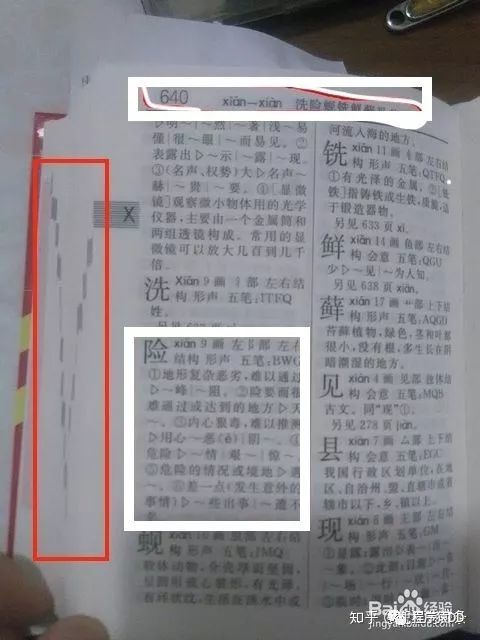 640 xiǎn—xiàn 洗险蚬铣鲜藓见
▷明~|~然|~著|浅~易
懂|很~眼|~而易见。②
表露出▷~示|~露|~现。
③(名声、权势)大▷名声~
赫|~贵|~要。④[显微
镜]观察微小物体用的光学
仪器,主要由一个金属筒和
两组透镜构成。常用的显
微镜可以放大几百到几千
倍。
X
洗 xiǎn 9画 氵部 左右结
构 形声 五笔:ITFQ
姓。
另见 633页 xǐ。
险 xiǎn 9画 左阝部 左右
结构 形声 五笔:BWG
①地形复杂恶劣,难以通过
▷~峰|~阻。②险要而很
难通过或达到的地方▷天
~。③内心狠毒,难以推测
▷用心~恶(è)|阴~。④
危险▷~情|艰~|惊~。
⑤危险的情况或境地▷遇
~。⑥差一点(发生意外的
事情)▷~些出事|~遭不
蚬 xiǎn 10画 虫部 左右结
构 形声 五笔:JMQ
软体动物,介壳厚而坚固,
有环状纹,生活在淡水中或
河流入海的地方。
铣 xiǎn 11画 钅部 左右结
构 形声 五笔:QTFQ
①有光泽的金属。②[
铁]指铸铁或生铁,质脆,适
于锻造器物。
另见 633页 xǐ。
鲜 xiǎn 14画 鱼部 左右结
构 会意 五笔:QGU
少▷~见|~为人知。
另见 638页 xiān。
藓 xiǎn 17画 艹部 上下结
构 形声 五笔:AQGD
苔藓植物,绿色,茎和叶都
很小,没有根,多生长在阴
暗潮湿的地方。
见 xiàn 4画 见部 独体结
构 会意 五笔:MQB
古文。同“现”①。
另见 278页 jiàn。
县 xiàn 7画 厶部 上下结
构 会意 五笔:EGC
我国行政区划单位,在地
区、自治州、盟、直辖市或省
辖市以下,乡、镇以上。
现 xiàn 8画 王部 左右结
构 形声 五笔:GM
①显露;露出▷表~|
Baidu 百度经验
jingyan.baidu.com
知乎